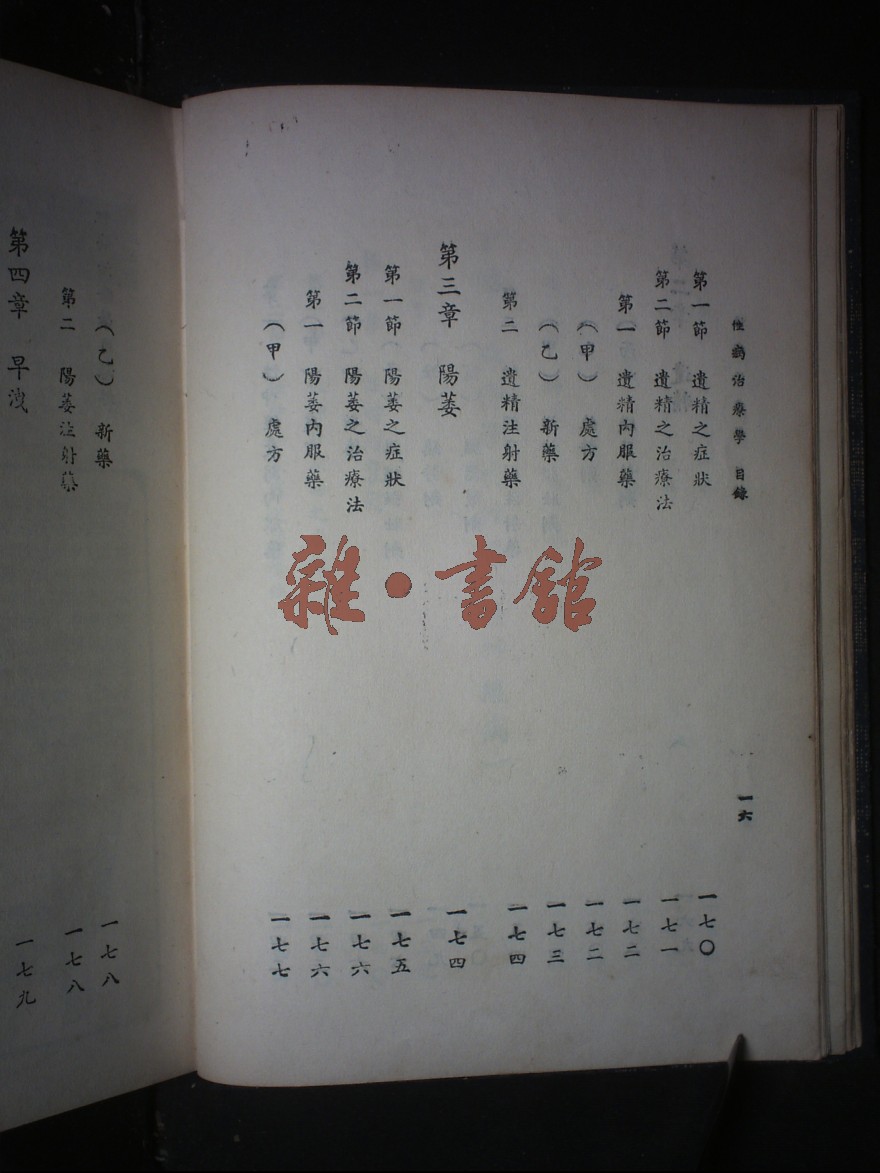 性病治療學 目錄
一六
第一節 遺精之症狀 一七〇
第二節 遺精之治療法 一七一
第一 遺精內服藥 一七二
(甲) 處方 一七二
(乙) 新藥 一七三
第二 遺精注射藥 一七四
第三章 陽萎 一七四
第一節 陽萎之症狀 一七五
第二節 陽萎之治療法 一七六
第一 陽萎內服藥 一七六
(甲) 處方 一七七
(乙) 新藥 一七八
第二 陽萎注射藥 一七八
第四章 早洩 一七九
雜·書館